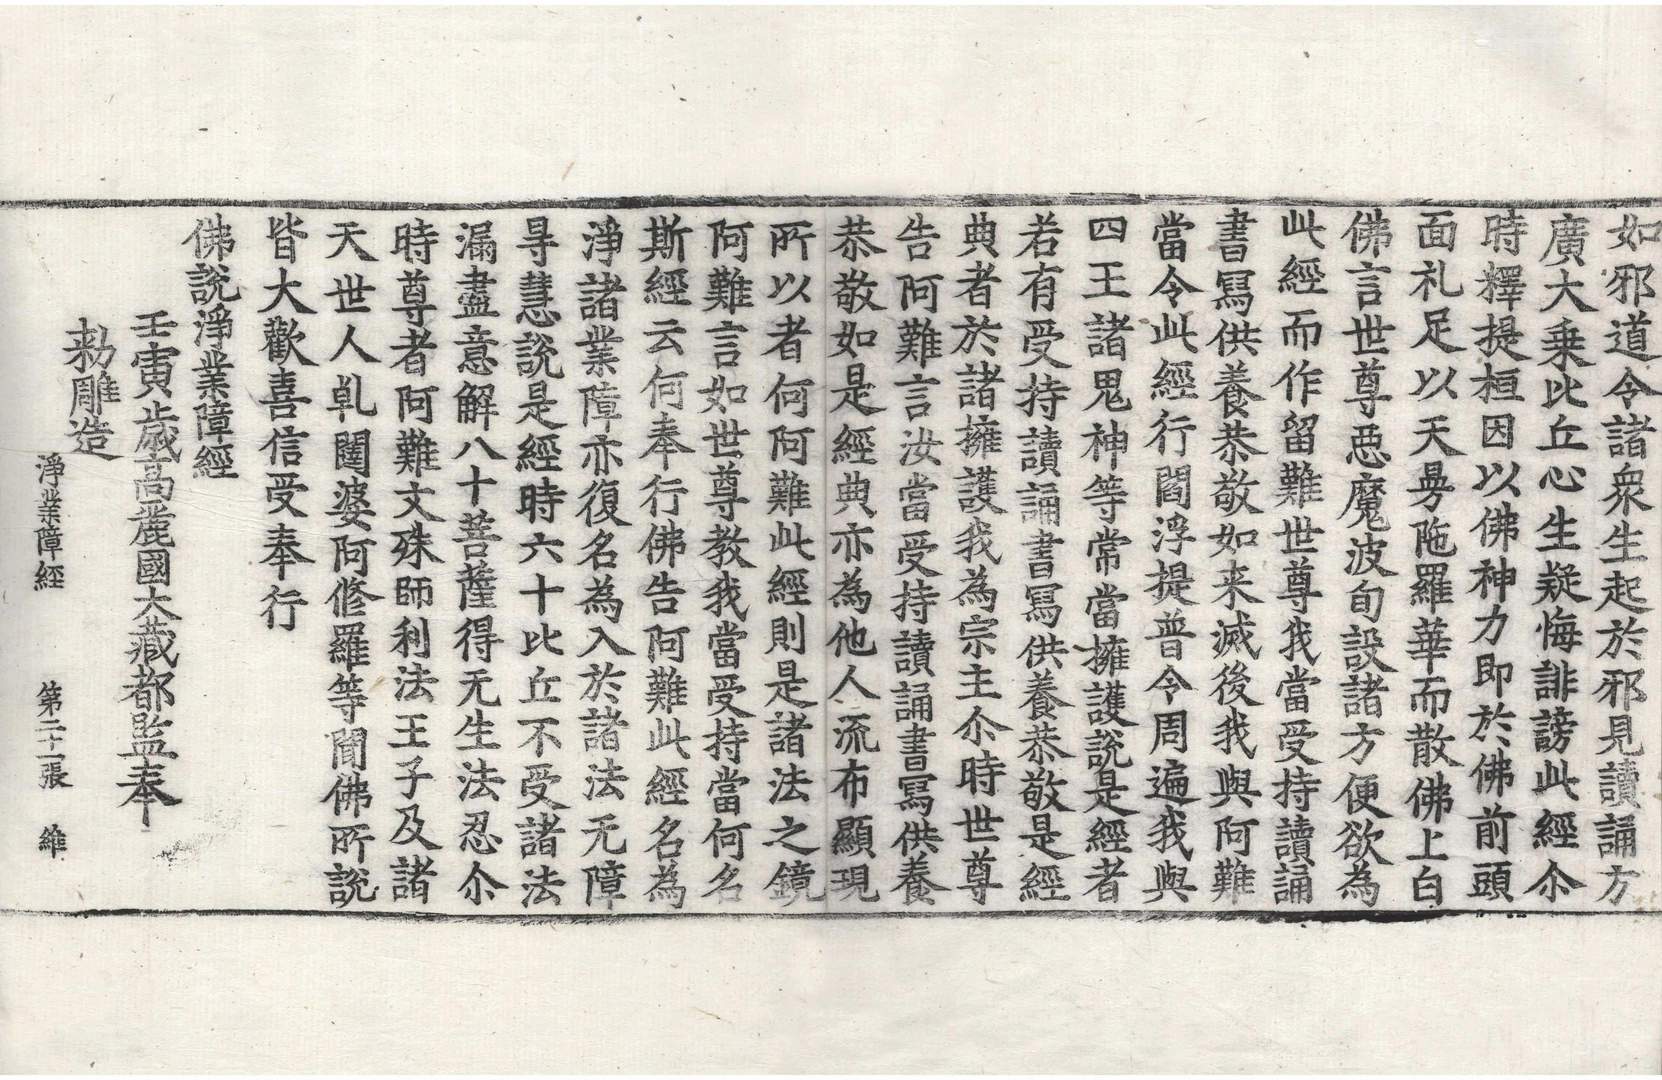 如邪道令諸衆生起於邪見讀誦方
廣大乗比丘心生疑悔誹謗此經尒
時釋提桓因以佛神力即於佛前頭
面礼足以天曼陁羅華而散佛上白
佛言世尊惡魔波旬設諸方便欲為
此經而作留難世尊我當受持讀誦
書寫供養恭敬如来滅後我與阿難
當令此經行閻浮提普令周遍我與
四王諸鬼神等常當擁護說是經者
若有受持讀誦書寫供養恭敬是經
典者於諸擁護我為宗主尒時世尊
告阿難言汝當受持讀誦書寫供養
恭敬如是經典亦為他人流布顯現
所以者何阿難此經則是諸法之鏡
阿難言如世尊教我當受持當何名
斯經云何奉行佛告阿難此經名為
淨諸業障亦復名為入於諸法无障
㝵慧說是經時六十比丘不受諸法
漏盡意解八十菩薩得无生法忍尒
時尊者阿難文殊師利法王子及諸
天世人乹闥婆阿修羅等聞佛所說
皆大歡喜信受奉行
佛說淨業障經
壬寅歲高麗國大藏都監奉
勑雕造
淨業障經 第二十一張 維